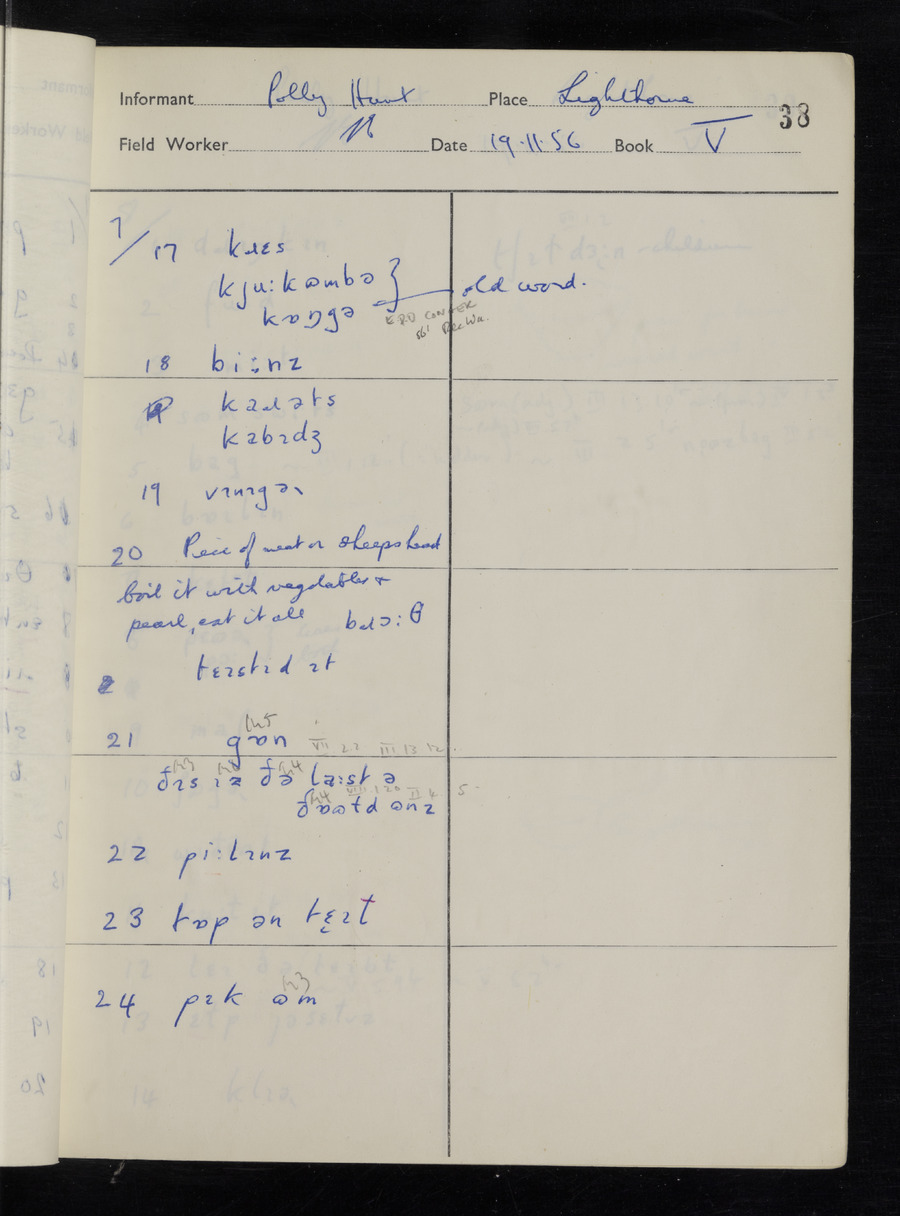 Informant Polly Hunt Place Lighthorne 38
Field Worker Date 19.11.56 Book V
7/17 kɹɛs
kju:kəmbə } old word.
kɒŋgə
18 bi:nz
kaɹəts
kabɪdʒ
19 vɪnɪgəɹ
20 Piece of meat or sheeps head
boil it with vegetables +
pearl, eat it all bɹɔ:θ
tɛɪstɪd ɪt
21 gɒn VII 2.2 III 13 12
ðɪs ɪz ðə la:st ə
ðə ənz
22 pi:lɪnz
23 tɒp ən tɛɪt
24 pɪk əm